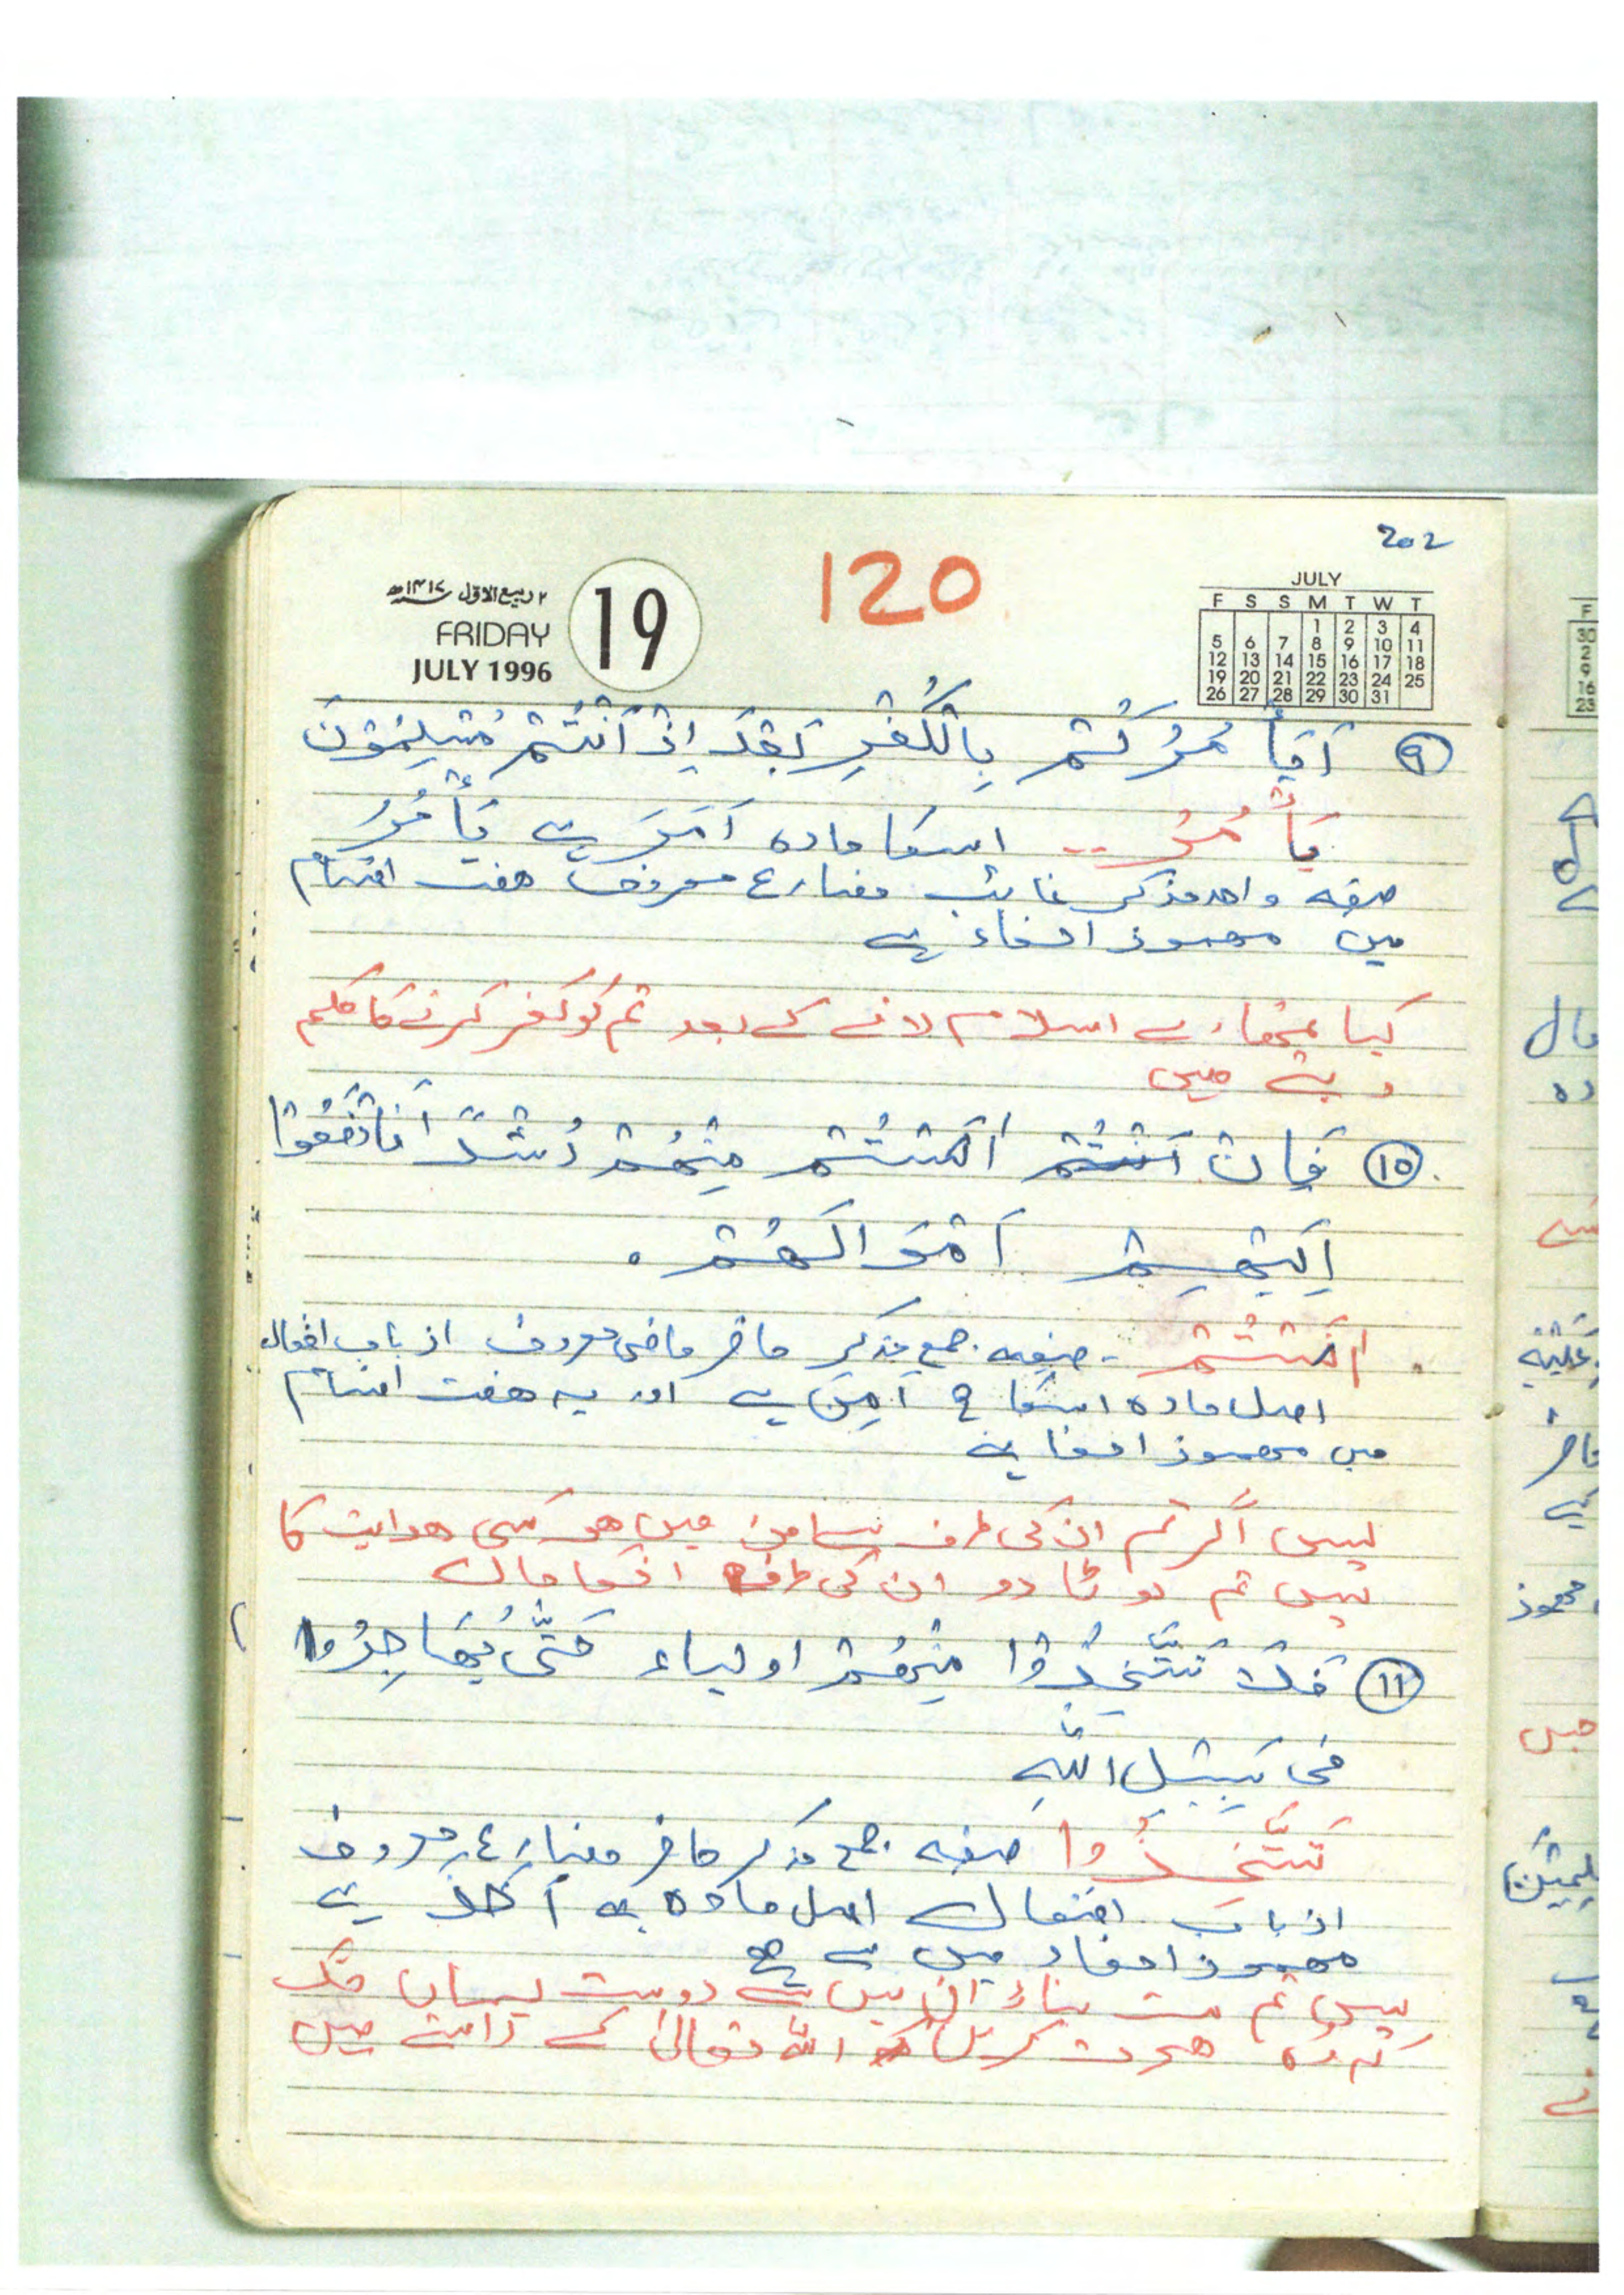 202
120
۲ ربیع الاول ۱۴۱۷ھ
FRIDAY
JULY 1996
19
JULY
F S S M T W T
1 2 3 4
5 6 7 8 9 10 11
12 13 14 15 16 17 18
19 20 21 22 23 24 25
26 27 28 29 30 31
۹ اَیَأْمُرُکُمْ بِالْکُفْرِ بَعْدَ اِذْ اَنْتُمْ مُسْلِمُوْنَ
یَأْمُرُ -- اسکا مادہ اَمَرَ ہے یَأْمُرُ
صیغہ واحد مذکر غائب مضارع معروف ہفت اقسام
میں مہموز الفاء ہے
کیا تمھارے اسلام لانے کے بعد تم کو کفر کرنے کا حکم
دیتے ہیں
۱۵ فَاِنْ اٰنَسْتُمْ مِنْھُمْ رُشْدًا فَادْفَعُوْا
اِلَیْھِمْ اَمْوَالَھُمْ ۰
اٰنَسْتُمْ - صیغہ جمع مذکر حاضر ماضی معروف از باب افعال
اصل مادہ اسکا ہے اور یہ ہفت اقسام
میں مہموز الفا ہے
پس اگر تم ان کی طرف سے امن میں ہو کسی ھدایت کا
پس تم لوٹا دو ان کی طرف انکا مال
۱۱ فَلَا تَتَّخِذُوْا مِنْھُمْ اولیاء حَتّٰی یُھَاجِرُوا
فی سَبِیْلِ اللّٰہِ
تَتَّخِذُوا صیغہ جمع مذکر حاضر مضارع معروف
از باب افتعال اصل مادہ اَخَذَ ہے
مہموز الفاء میں سے ہے
پس تم مت بناؤ ان میں سے دوست یہاں تک
کہ وہ ھجرت کریں اللہ تعالیٰ کے راستے میں